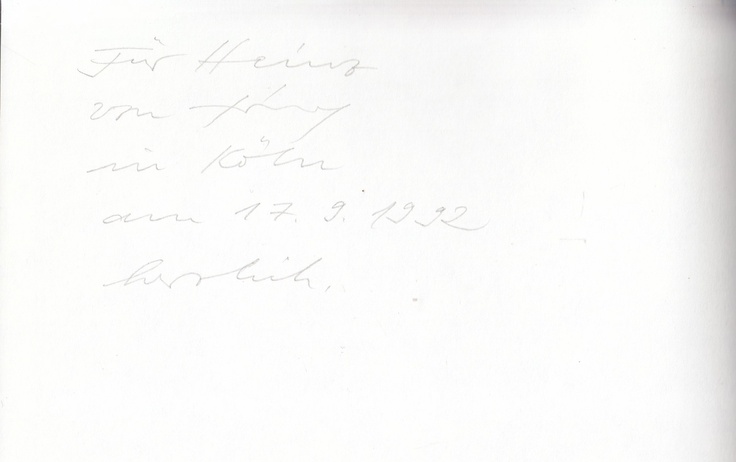 Für Heinz
von
in Köln
am 17. 9. 1992
herzlich.